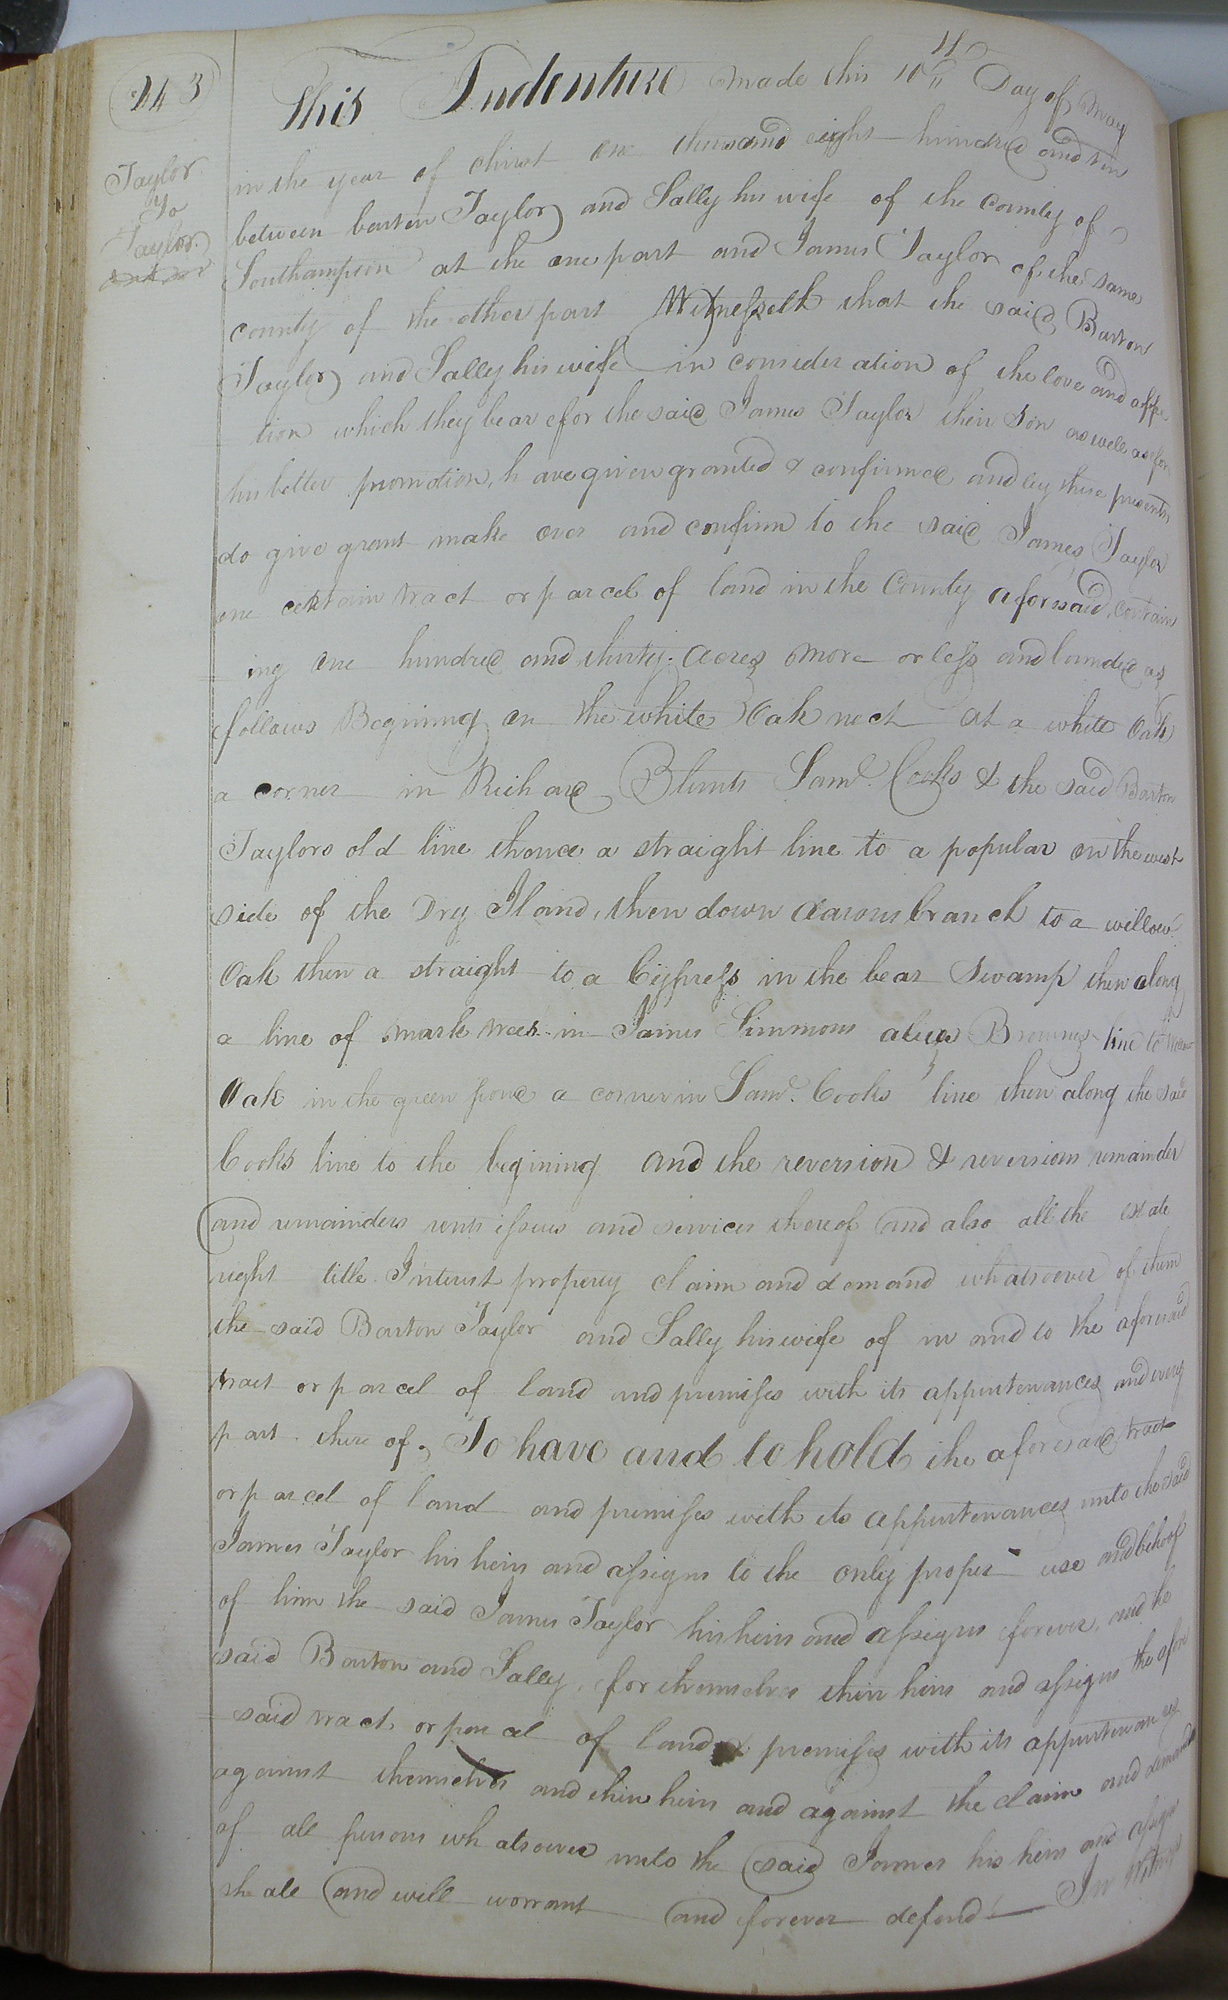 243
Taylor
To
Taylor
This Indenture made this 10th Day of May
in the year of christ one thousand eight hundred and ten
between barton Taylor and Sally his wife of the county of
Southampton at the one part and James Taylor of the same
county of the other part Witnesseth that the said Barton
Taylor and Sally his wife in consideration of the love and affec
tion which they bear efor the said James Taylor their Son as well as for
his better promotion, have given granted & confirmed and by these presents
do give grant make over and confirm to the said James Taylor
one certain tract or parcel of land in the County aforesaid, contain
ing one hundred and thirty acres more or less and bounded as
follows Begining on the white Oak neck at a white Oak
a corner in Richard Blunts Saml. Cooks & the said Barton
Taylors old line thence a straight line to a popular on the west
side of the Dry Iland, then down Aarons branch to a willow
Oak then a straight to a Cypress in the bear Swamp then along
a line of mark trees in James Simmons alias Browns line to
Oak in the green pond a corner in Saml. Cooks line then along the said
Cooks line to the begining and the reversion & reversions remainder
and remainders rents issues and services thereof and also all the estate
right title Interest property claim and demand whatsoever of them
the said Barton Taylor and Sally his wife of in and to the aforesaid
tract or parcel of land and premises with its appurtenances and every
part there of, To have and to hold the aforesaid tract
or parcel of land and premises with its appurtenances unto the said
James Taylor his heirs and assigns to the only proper use and behoof
of him the said James Taylor his heirs and assigns forever, and the
said Barton and Sally, for themselves their heirs and assigns the afore
said tract or parcel of land & premises with its appurtenances
against themselves and their heirs and against the claim and demands
of all persons whatsoever unto the said James his heirs and assigns
shall and will warrant and forever defend In Witness